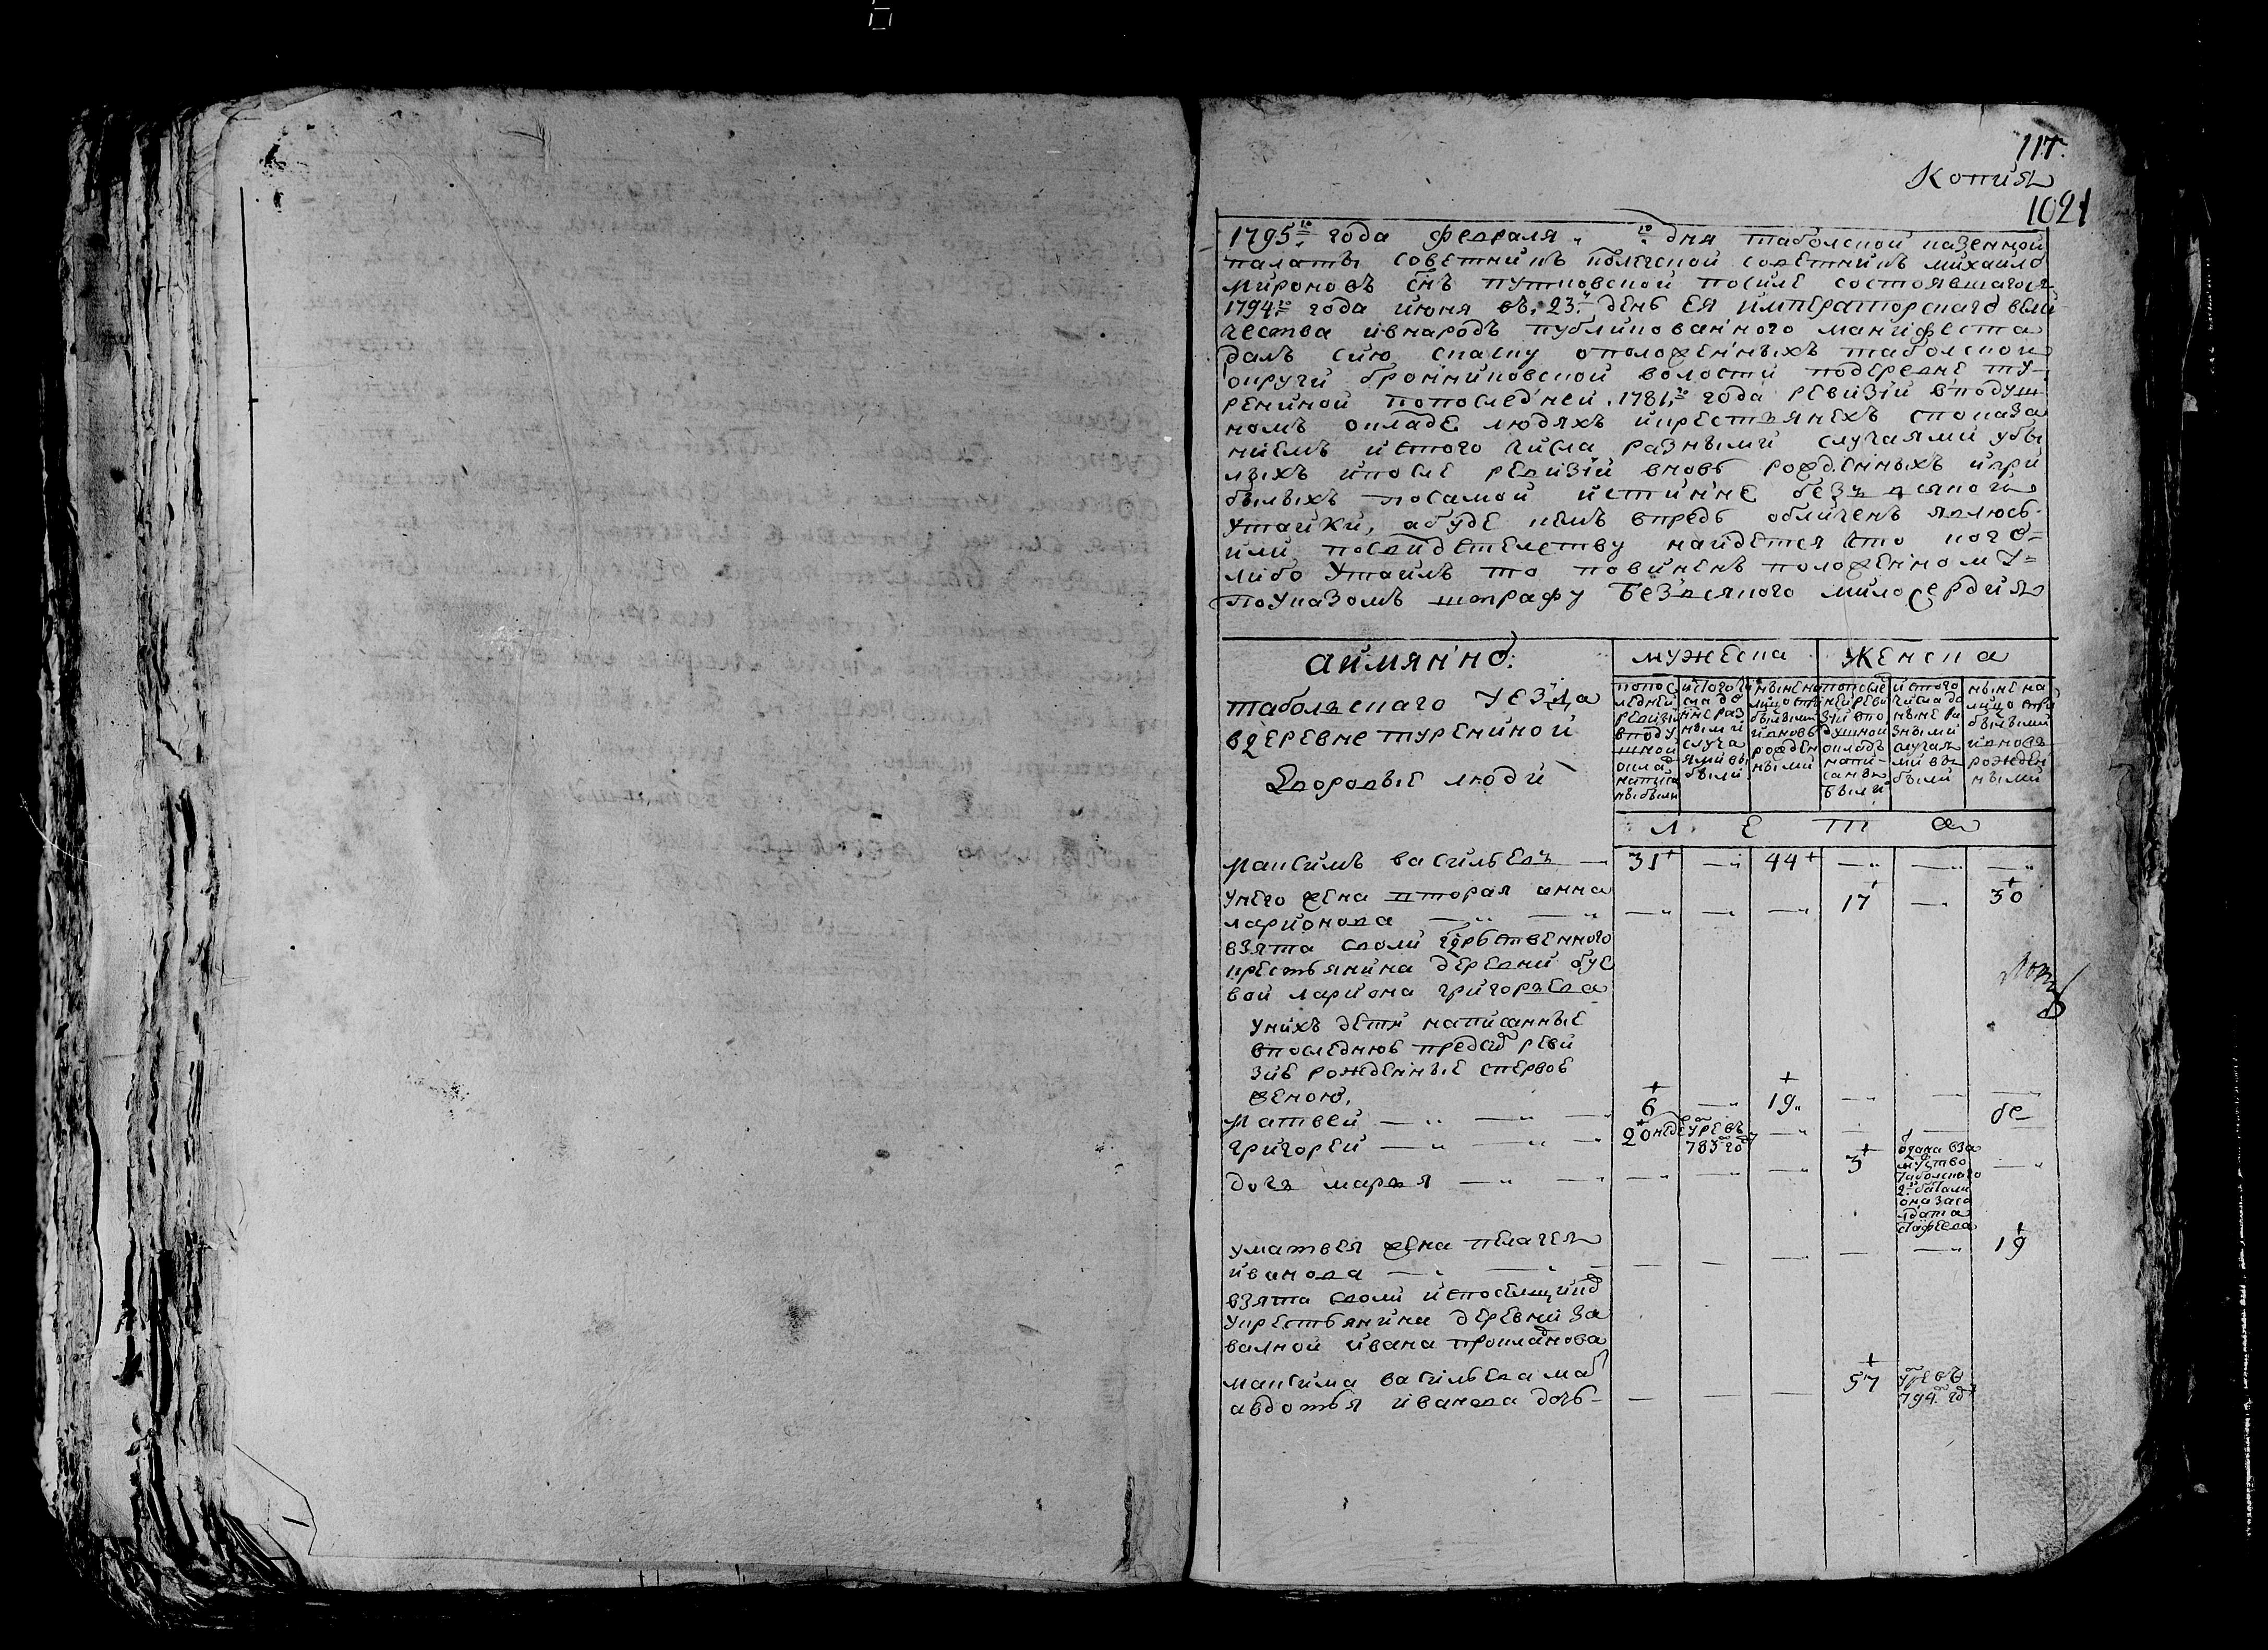 117.
Копия
1021
1795го года февраля " го дня таболской казенной
палаты советникъ колегской советникъ михайло
мироновъ снъ путковской посиле состоявшагося
1794го года июня въ 23й день ея императорскаго вели
чества ивнародъ публикованного манифеста
далъ сию скаску оположенныхъ таболской
округи бронниковской волости подеревне ту-
рениной попоследней 1781го года ревизии вподуш
номъ окладе людяхъ икрестьянехъ споказа
ниемъ истого числа разными случаями убы
лыхъ ипосле ревизии вновь рожденныхъ ипри
былыхъ посамой истинне безъ всякой
утайки, абуде кемъ впредь обличенъ явлюсь
или посвидетелству найдется что кого-
либо утаилъ то повиненъ положенному-
поуказомъ штрафу безвсякого милосердия
аимянно:
мужеска женска
таболскаго уезда
вдеревне турениной
дворовые люди
попос
ледней
ревизии
вподу
шной
оклад
написа
ны были
истого чи
сла до
ныне раз
ными
случа
ями вы
были
ныне на
лицо спри
былыми
ивновь
рожден
ными
попосле
дней реви
зии вподушной
окладъ
напи-
саны
были
истого
числа до
ныне ра
зными
случая
ми вы
были
ныне на
лицо спри
былыми
ивновь
рожден
ными
л е т а
максимъ васильевъ — 31+ —" 44+ —" —" —"
унего жена вторая анна
ларионова — — — 17+ — 30+
взята своли гдрственного
крестьянина деревни бус
вой лариона григорьева
унихъ дети написанные
впоследнюю предсию реви
зию рожденные спервою
женою,
матвей — 6+ — 19+ — — —
григорей — 20 неде умре въ 783 году — — — —
дочь марья — — — — 3+ отдана вза
мужство
таболского
2го батали
она заса
лдата
уматвея жена пелагея
иванова — — — — — — 19+
взята
крестьянина деревни за
валной ивана прокланова
максима васильева мать
авдотья иванова дочь — — — — 57+ умре въ
794 году